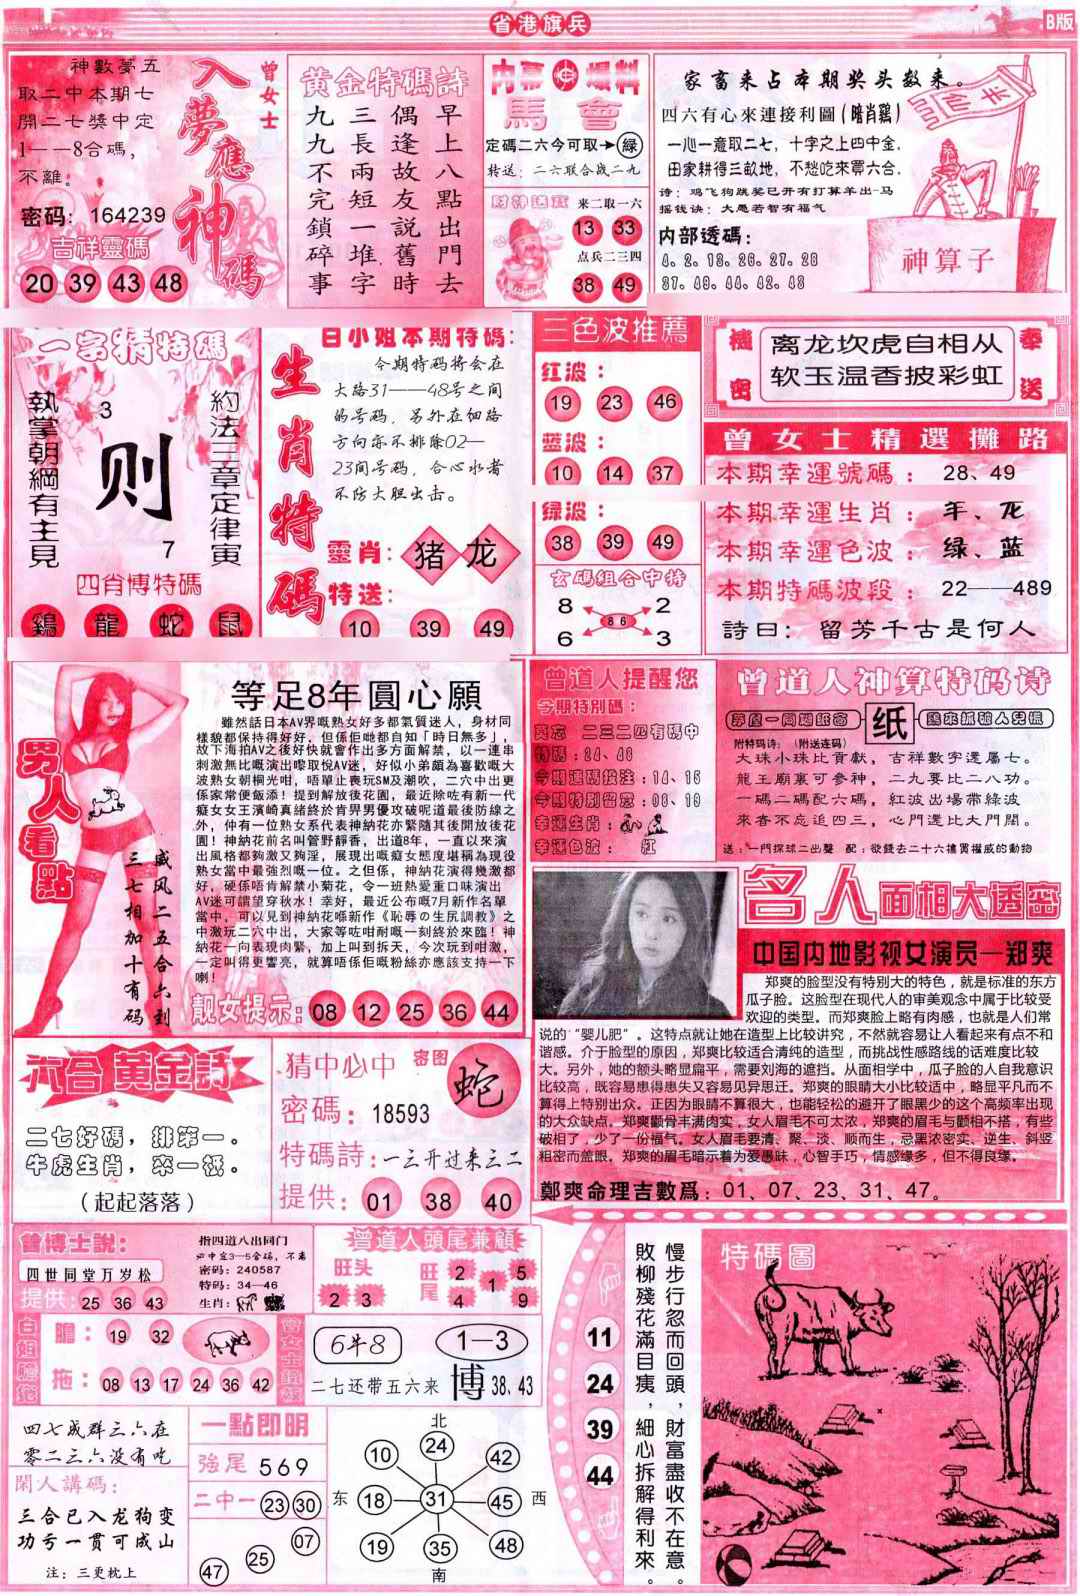 省港旗兵
B版
神數夢五
取二中本期七
開二七獎中定
1——8合碼,
不離。
密码: 164239
吉祥靈碼
20 39 43 48
入夢應神碼
曾女士
黄金特碼詩
早上八點出門去
偶逢故友説舊時
三長兩短一堆字
九九不完鎖碎事
内幕爆料
馬會
定碼二六今可取→綠
转送:二六联合战二九
財神送寶
来二取一六
13 33
点兵二三四
38 49
家畜来占本期奖头数来。
四六有心來連接利圖(暗肖鷄)
一心一意取二七,十字之上四中金,
田家耕得三畝地,不愁吃來買六合.
诗:鸡飞狗跳奖已开有打算羊出-马
摇钱诀:大愚若智有福气
内部透碼:
4.2.18.26.27.28
37.49.44.42.48
神算子
一字猜特碼
約法三章定律寅
3
则
7
執掌朝綱有主見
四肖博特碼
鷄 龍 蛇 鼠
生肖特碼
白小姐本期特碼:
今期特码将会在
大路31——48号之间
的号码,另外在细路
方向亦不排除02—
23间号码,合心水者
不防大胆出击。
靈肖: 猪 龙
特送:
10 39 49
三色波推薦
红波:
19 23 46
蓝波:
10 14 37
绿波:
38 39 49
玄碼組合中特
8 2
86
6 3
機密
奉送
离龙坎虎自相从
软玉温香披彩虹
曾女士精選攤路
本期幸運號碼: 28、49
本期幸運生肖: 羊、龙
本期幸運色波: 绿、蓝
本期特碼波段: 22——489
詩曰: 留芳千古是何人
男人看點
三七相加十有码
威风二五合六到
等足8年圓心願
雖然話日本AV界嘅熟女好多都氣質迷人,身材同
樣貌都保持得好好,但係佢哋都自知「時日無多」,
故下海拍AV之後好快就會作出多方面解禁,以一連串
刺激無比嘅演出嚟取悅AV迷,好似小弟頗為喜歡嘅大
波熟女朝桐光咁,唔單止喪玩SM及潮吹,二穴中出更
係家常便飯添!提到解放後花園,最近除咗有新一代
癡女女王濱崎真緒終於肯畀男優攻破呢道最後防線之
外,仲有一位熟女系代表神納花亦緊隨其後開放後花
園!神納花前名叫管野靜香,出道8年,一直以來演
出風格都夠激又夠淫,展現出嘅癡女態度堪稱為現役
熟女當中最強烈嘅一位。之但係,神納花演得幾激都
好,硬係唔肯解禁小菊花,令一班熱愛重口味演出
AV迷可謂望穿秋水!幸好,最近公布嘅7月新作名單
當中,可以見到神納花喺新作《恥辱の生尻調教》之
中激玩二穴中出,大家等咗咁耐嘅一刻終於來臨!神
納花一向表現肉緊,加上叫到拆天,今次玩到咁激,
一定叫得更響亮,就算唔係佢嘅粉絲亦應該支持一下
喇!
靓女提示: 08 12 25 36 44
曾道人提醒您
今期特别碼:
莫忘 二三二四有碼中
特碼:24、46
今期選碼投注:14、15
今期特别留意:08、18
幸運生肖:
幸運色波: 紅
曾道人神算特码诗
纸
附特码诗:(附送连码)
大珠小珠比貢獻,吉祥數字還屬七。
龍王廟裏可參神,二九要比二八功。
一碼二碼配六碼,紅波出場帶綠波
來香不忘追四三,心門還比大門闊。
送:一門探球二出聲 配:欲錢去二十六擔買權威的動物
名人面相大透密
中国内地影视女演员—郑爽
郑爽的脸型没有特别大的特色,就是标准的东方
瓜子脸。这脸型在现代人的审美观念中属于比较受
欢迎的类型。而郑爽脸上略有肉感,也就是人们常
说的“婴儿肥”。这特点就让她在造型上比较讲究,不然就容易让人看起来有点不和
谐感。介于脸型的原因,郑爽比较适合清纯的造型,而挑战性感路线的话难度比较
大。另外,她的额头略显扁平,需要刘海的遮挡。从面相学中,瓜子脸的人自我意识
比较高,既容易患得患失又容易见异思迁。郑爽的眼睛大小比较适中,略显平凡而不
算得上特别出众。正因为眼睛不算很大,也能轻松的避开了眼黑少的这个高频率出现
的大众缺点。郑爽颧骨丰满肉实,女人眉毛不可太浓,郑爽的眉毛与颧相不搭,有些
破相了,少了一份福气。女人眉毛要清、聚、淡、顺而生,忌黑浓密实、逆生、斜竖
粗密而盖眼。郑爽的眉毛暗示着为爱愚昧,心智手巧,情感缘多,但不得良缘。
鄭爽命理吉數爲:01、07、23、31、47。
六合黄金詩
二七好碼,排第一。
牛虎生肖,卒一祇。
(起起落落)
猜中必中 密图 蛇
密碼:18593
特碼詩:一三开过来三二
提供: 01 38 40
曾博士説:
四世同堂万岁松
提供: 25 36 43
指四道八出同门
必中定3—5合码,不离
密码:240587
特码:34—46
生肖:
曾道人頭尾兼顧
旺头
2 3
旺尾
2 5
1
4 9
白姐膽拖
膽: 19 32
拖: 08 13 17 24 36 42
6牛8
1—3
二七还带五六来 博 38、43
四七成群三六在
零二三六没有吃
閑人講碼:
三合已入龙狗变
功亏一贯可成山
注:三更枕上
一點即明
強尾 569
二中一 23 30
07
25
47
北
24
10 42
东 18 31 45 西
19 48
35
南
11
24
39
44
慢步行忽而回頭,財富盡收不在意。
敗柳殘花滿目痍,細心拆解得利來。
特碼圖